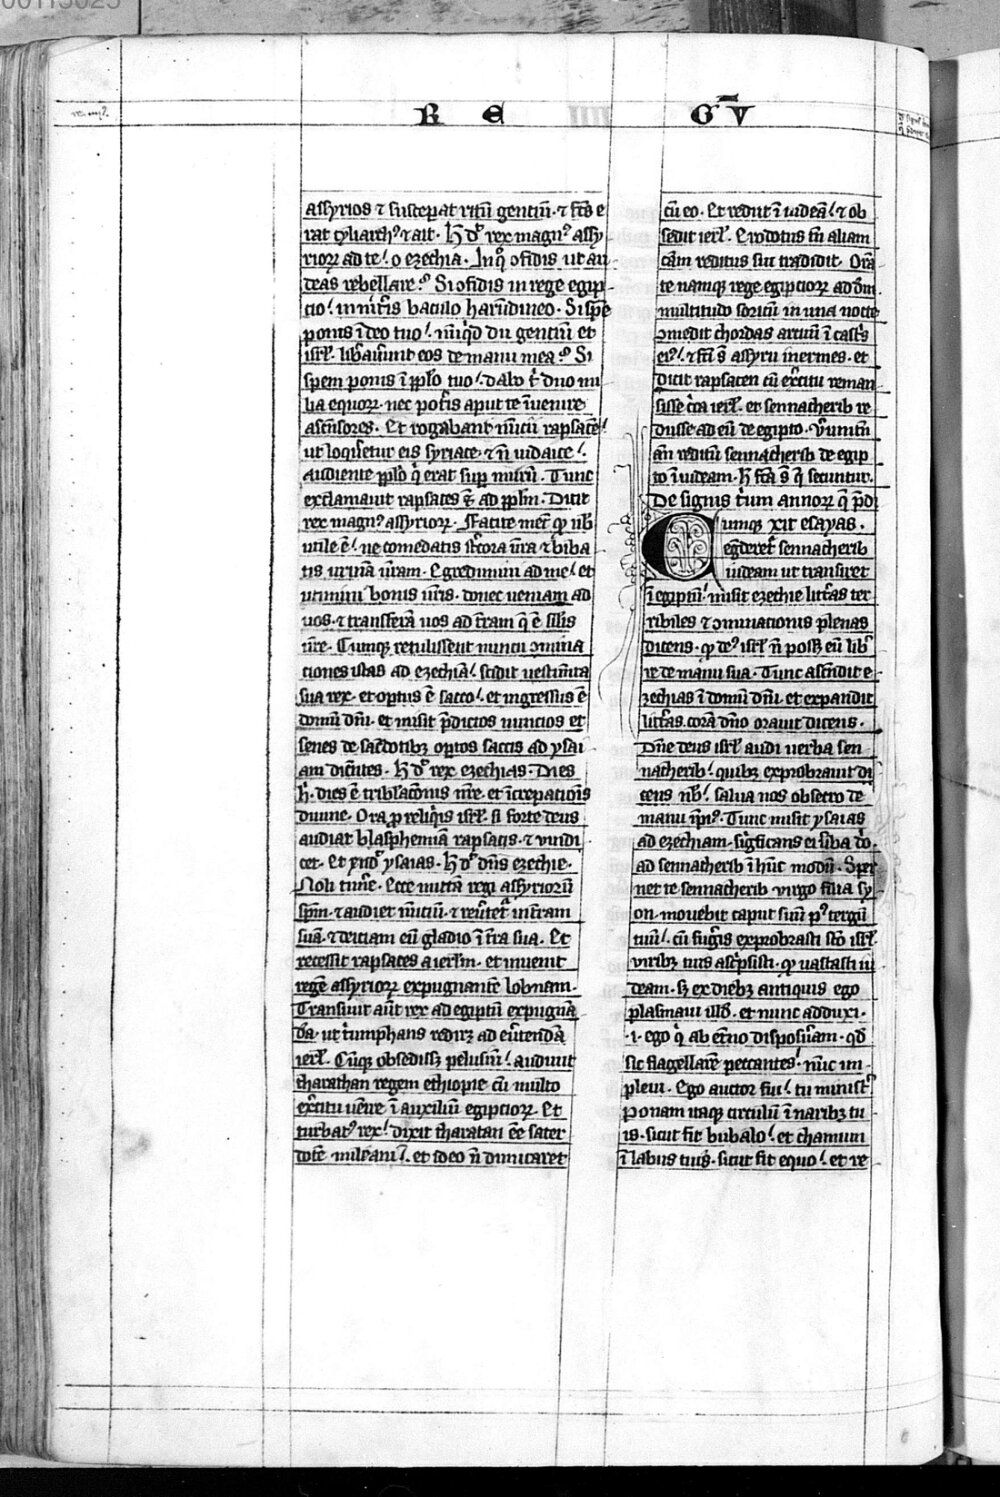 00113025
R E G̅ V
assyrios ⁊ susceperat ritū gentiū. ⁊ fcūs e
rat tyliarchꝰ ⁊ ait. H̄ dī rex magnꝰ assy
rioꝝ ad te. o ezechia. In q̄ ꝯfidis ut au
deas rebellare. Si ꝯfidis in rege egip
cio. inniteris baculo harūdineo. Si spē
ponis ī deo tuo. nūqͥd dii gentiū et
isrl̄. liƀaverunt eos de manu mea. Si
spem ponis ī pplo tuo. dabo tͥ duo mi
lia equoꝝ. nec potis aput te īvenire
ascēsores. Et rogabant nūcii rapsacē
ut loqͥretur eis syriace. ⁊ n̄ iudaice.
audiente pplo qͥ erat supͣ murū. Tunc
exclamavit rapsaces ad pplm̄. Dicit
rex magnꝰ assyrioꝝ. Facite mecū qͦ uob̄
utile ē. ne comedatis stercora ur̄a ⁊ biba
tis urinā ur̄am. Egredimini ad me. et
utimini bonis ur̄is. donec veniam ad
vos. ⁊ transferā vos ad tr̄am q̄ ē silis
ur̄e. Cumqꝫ retulissent nuncii ꝯmina
tiones istas ad ezechiā. scidit vestim̄ta
sua rex. et optus ē sacco. et ingressus ē
domū dn̄i. et misit p̄dictos nuncios et
senes de sacerdotibꝫ optos saccis ad ysai
am dicētes. H̄ dī rex ezechias. Dies
h̄. dies ē tribulacōnis nr̄e. et īcrepationis
divine. Ora ꝓ reliqͥis isrl̄. si forte deus
audiat blasphemiā rapsacis. ⁊ vindi
cet. Et rn̄dit ysaias. H̄ dī dn̄s ezechie.
Noli timēre. Ecce mittā regi assyrioꝝ
spm̄. ⁊ audiet nūciū. ⁊ revertetᷣ in terram
suā. ⁊ deiciam eū gladio ī tr̄a sua. Et
recessit rapsaces a ierl̄m. et invenit
regē assyrioꝝ expugnantē lobnam.
Transivit aut̄ rex ad egiptū expugnā
dā. ut tͥumphans rediret ad evertendā
ierl̄. Cūqꝫ obsedissꝫ pelusiū. audivit
tharathan regem ethiopie cū multo
exercitu venire ī auxiliū egipcioꝝ. Et
turbatꝰ rex. dixit tharatan ēe sacer
dotē mileani. et ideo n̄ dimicaret
cū eo. Et rediit ī iudeā. ⁊ ob
sedit ierl̄. Erodotus tn̄ aliam
cām reditus sui tradidit. Orā
te namqꝫ rege egipcioꝝ ad dn̄m
multitudo soricū in una nocte
ꝯmedit chordas arcuū ī castris
eiꝰ. ⁊ fc̄i s̄ assyrii inermes. et
dicit rapsacen cū exercitu reman
sisse c̄ca ierl̄. et sennacherib re
disse ad eū de egipto. Verumtn̄
an̄ reditū sennacherib de egip
to ī iudeam. H̄ fc̄a s̄ q̄ secuntur.
De signis tͥum annoꝝ q̄ p̄d
Cumqꝫ xit esayas.
egrederetᷣ sennacherib
iudeam ut transiret
ī egiptū. misit ezechie litt̄as ter
ribiles ⁊ ꝯminacionis plenas
dicens. qͦ deꝰ isrl̄ n̄ possꝫ eū libe
re de manu sua. Tunc ascēdit e
zechias ī domū dn̄i. et expandit
litt̄as corā dn̄o oravit dicens.
Dn̄e deus isrl̄ audi verba sen
nacherib. quibꝫ exprobravit di
cens nob̄. salva nos obsecro de
manu ip̄iꝰ. Tunc misit ysaias
ad ezechiam. sigͥficans ei ūba dn̄i.
ad sennacherib ī hūc modū. Sper
net te sennacherib virgo filia sy
on. movebit caput suū pꝰ tergū
tuū. cū fugͥis exprobrasti scō isrl̄.
viribꝫ tuis ascͥpsisti. qͦ vastasti iu
deam. sꝫ ex diebꝫ antiquis ego
plasmavi illd̄. et nunc adduxi.
.i. ego qͥ ab etn̄o disposueram. qd̄
sic flagellarē peccantes. nūc im
plevi. Ego auctor fui. tu minister
Ponam itaqꝫ circulū ī naribꝫ tu
is. sicut fit bubalo. et chamum
ī labiis tuis. sicut fit equo. et re